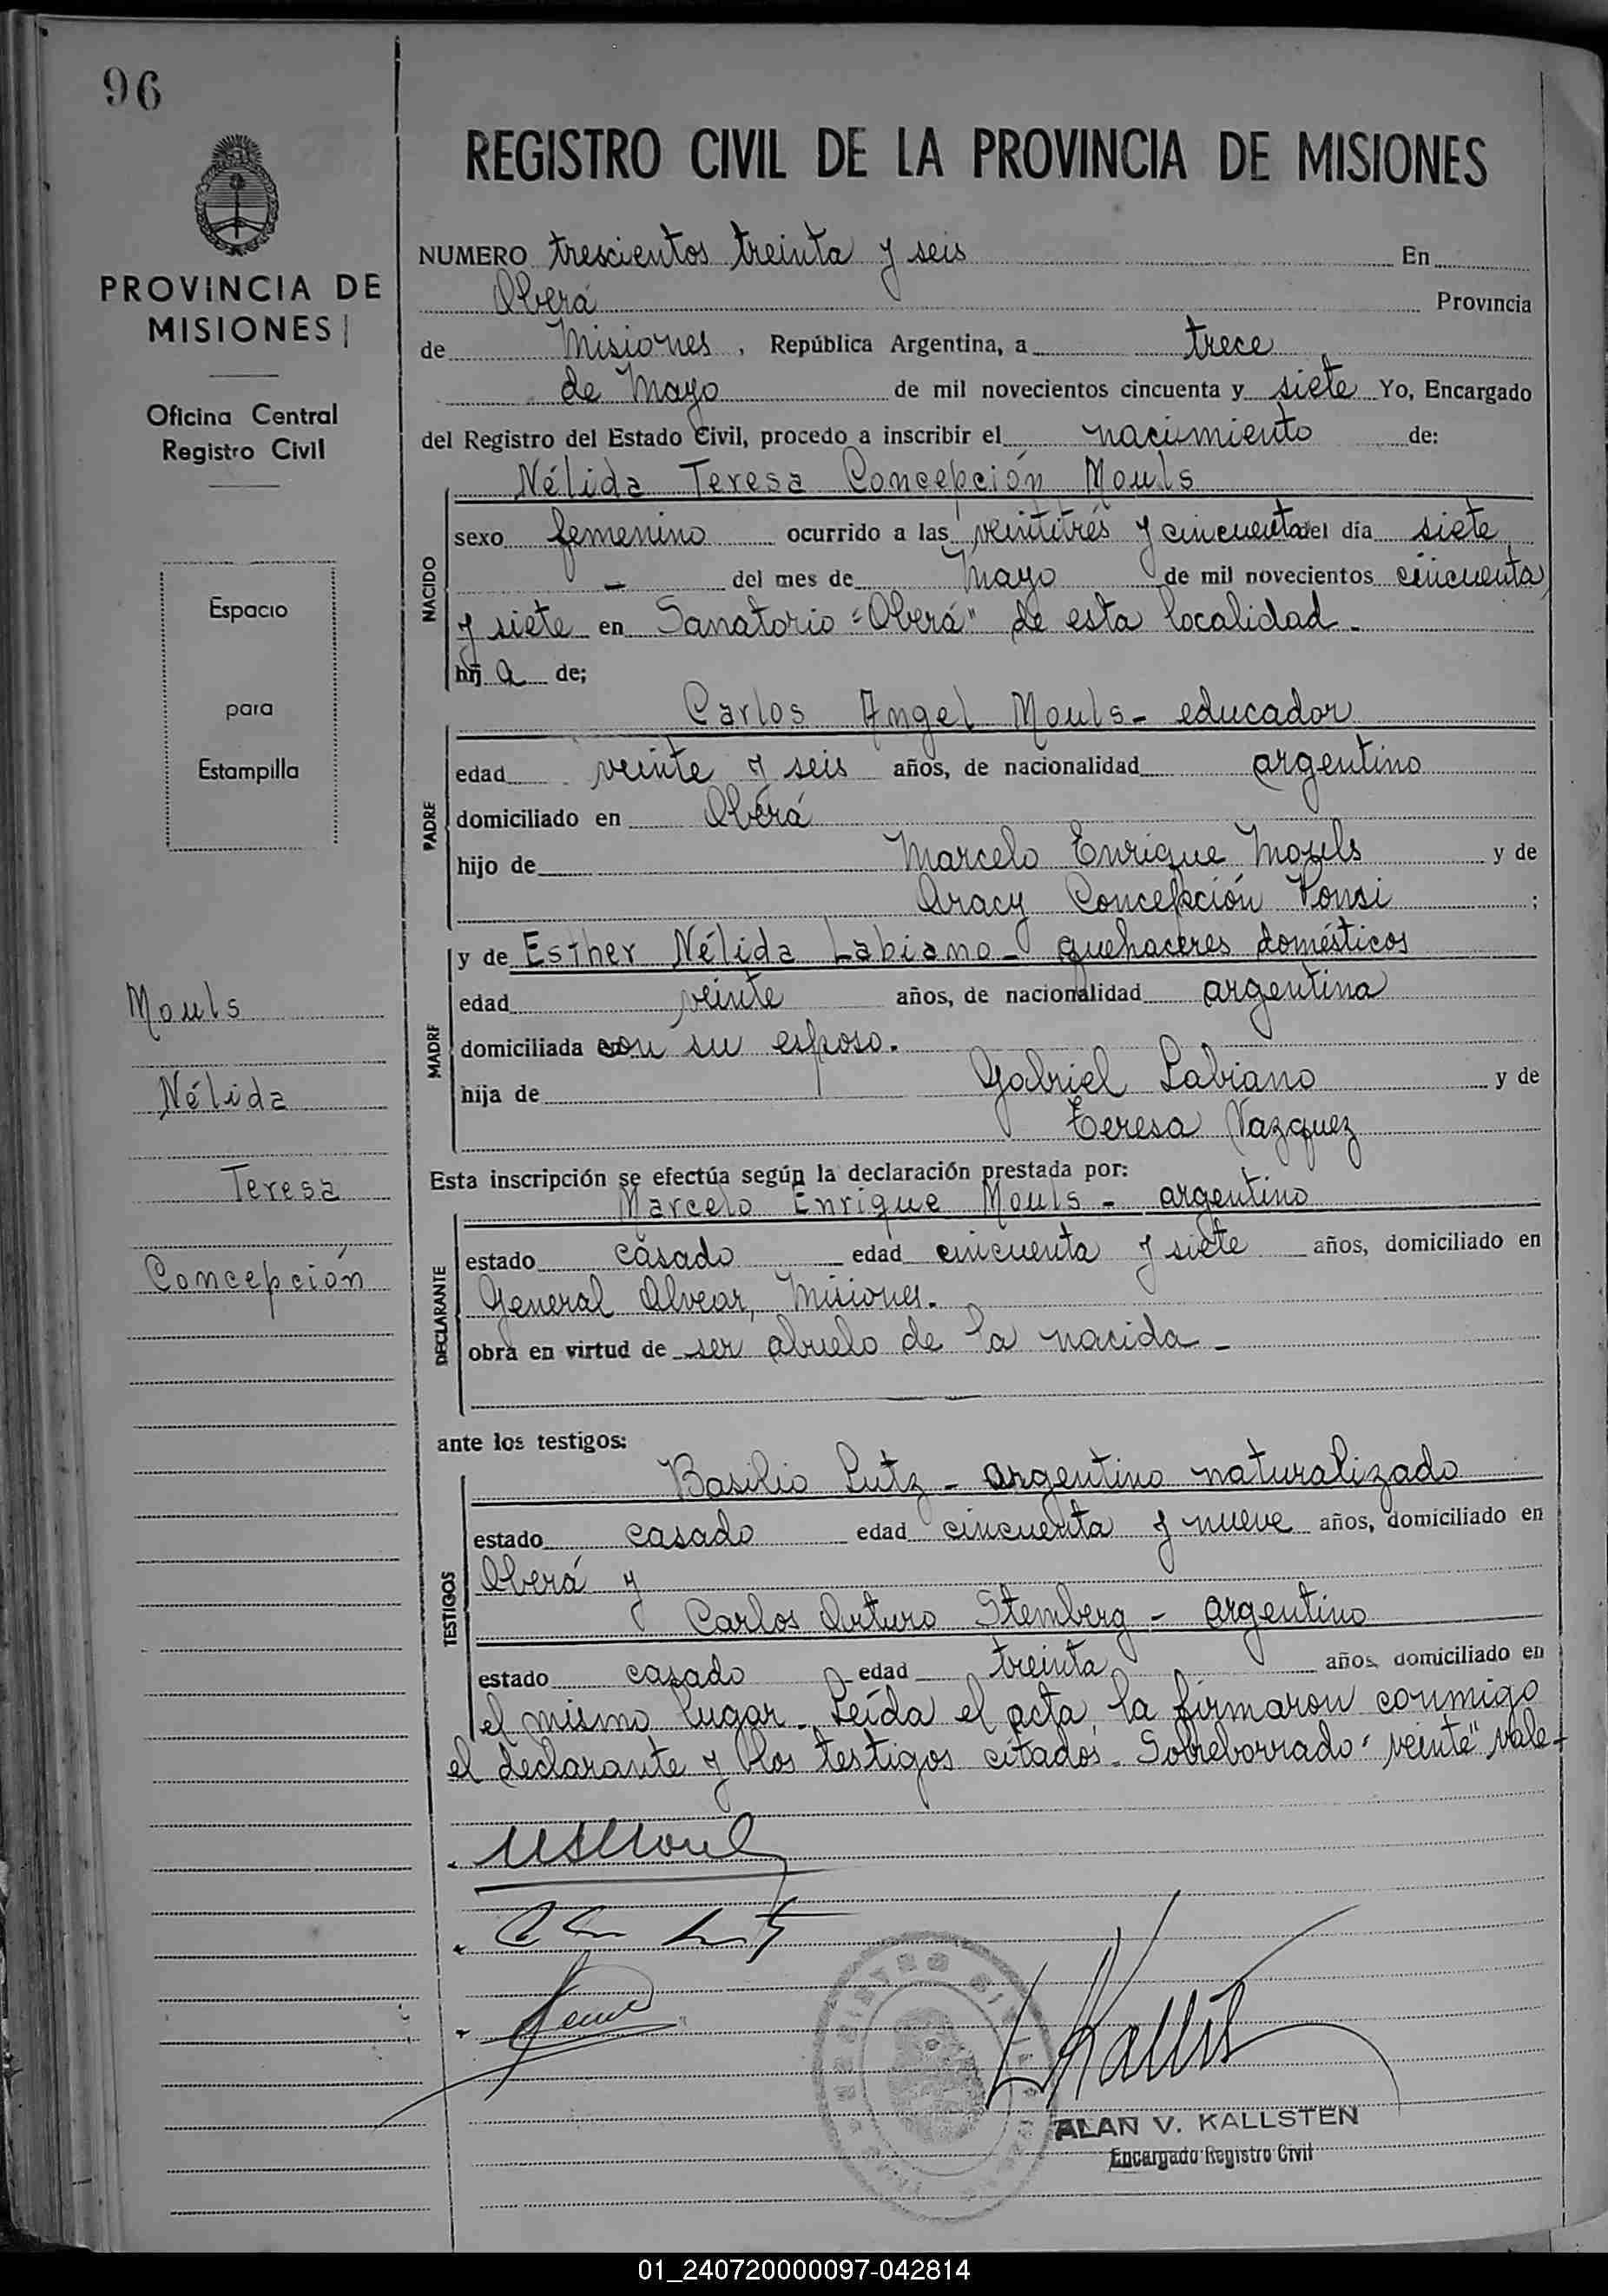 96
REGISTRO CIVIL DE LA PROVINCIA DE MISIONES
PROVINCIA DE
MISIONES
Oficina Central
Registro Civil
Espacio
para
Estampilla
Mouls
Nélida
Teresa
Concepción
NUMERO trescientos treinta y seis En
Oberá Provincia
de Misiones, República Argentina, a trece
de Mayo de mil novecientos cincuenta y siete Yo, Encargado
del Registro del Estado Civil, procedo a inscribir el nacimiento de:
Nélida Teresa Concepción Mouls
NACIDO
sexo femenino ocurrido a las veintitrés y cincuenta del día siete
– del mes de Mayo de mil novecientos cincuenta
y siete en Sanatorio "Oberá" de esta localidad.
hij a de;
Carlos Angel Mouls - educador
PADRE
edad veinte y seis años, de nacionalidad argentino
domiciliado en Oberá
hijo de Marcelo Enrique Mouls y de
Aracy Concepción Ponsi ;
y de Esther Nélida Labiano - quehaceres domésticos
MADRE
edad veinte años, de nacionalidad argentina
domiciliada con su esposo.
hija de Gabriel Labiano y de
Teresa Vazquez
Esta inscripción se efectúa según la declaración prestada por:
Marcelo Enrique Mouls - argentino
DECLARANTE
estado casado edad cincuenta y siete años, domiciliado en
General Alvear, Misiones.
obra en virtud de ser abuelo de la nacida -
ante los testigos:
Basilio Lutz - argentino naturalizado
TESTIGOS
estado casado edad cincuenta y nueve años, domiciliado en
Oberá y
Carlos Arturo Stemberg - argentino
estado casado edad treinta años domiciliado en
el mismo lugar. Leída el acta, la firmaron conmigo
el declarante y los testigos citados. Sobreborrado "veinte" vale-
ALAN V. KALLSTEN
Encargado Registro Civil
01_240720000097-042814